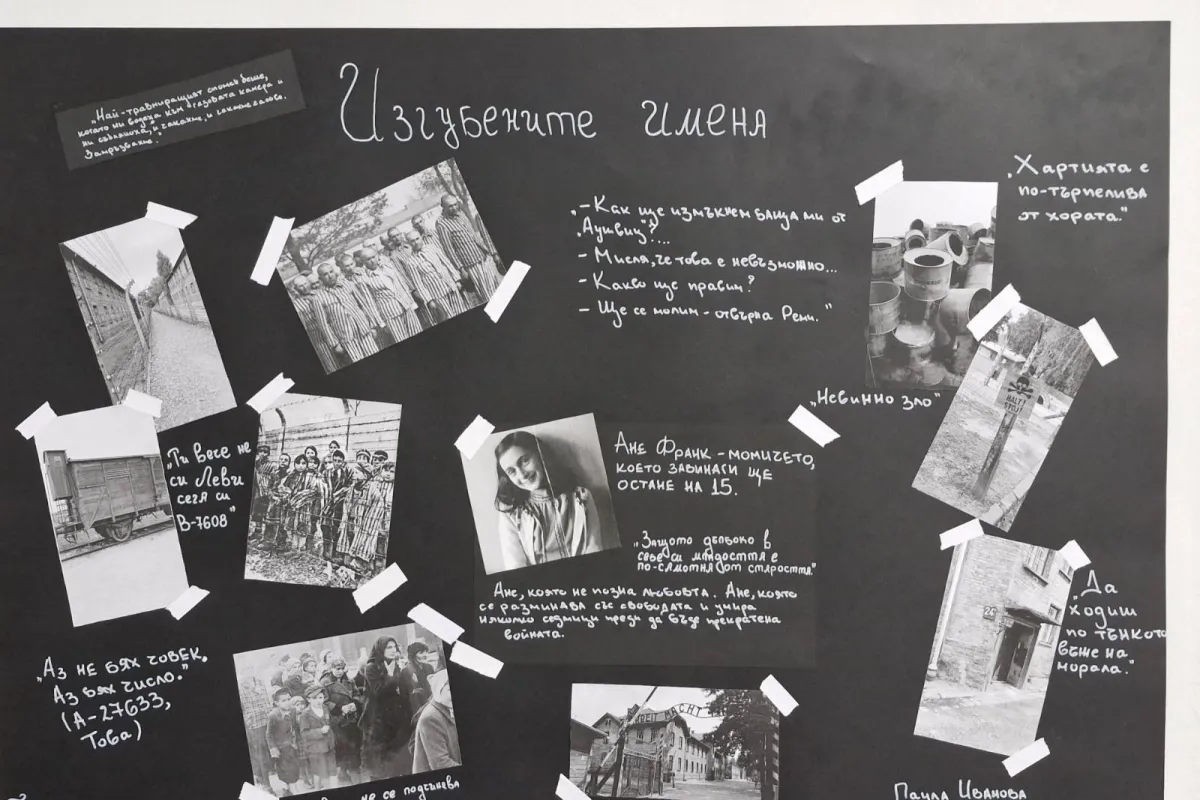 Изгубените имена
„Най-травмиращият спомен беше,
когато ни водеха към газовата камера и
ни събличаха, и чакаме, и
Замръзване."
„- Как ще измъкнем баща ми от
„Аушвиц"?...
- Мисля, че това е невъзможно...
- Какво ще правим?
- Ще се молим - отвърна Реми."
„Хартията е
по-търпелива
от хората."
„Невинно зло"
HALT!
STÓJ!
„Ти вече не
си Леви
сега си
В-7608"
Ане Франк - момичето,
което завинаги ще
остане на 15.
„Защото дълбоко в
себе си младостта е
по-самотна от старостта."
Ане, която не позна любовта. Ане, която
се разминава със свободата и умира
няколко седмици преди да бъде прекратена
войната.
24
„Да
ходиш
по тънкото
въже на
морала."
„Аз не бях човек.
Аз бях число."
(А-27633,
Това)
MACHT
не се подчинява
Паула Иванова